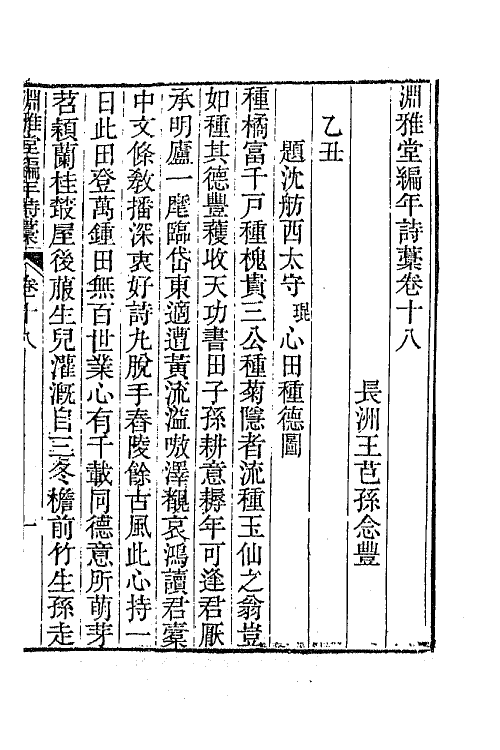 淵雅堂編年詩藁卷十八
長洲王芑孫念豐
乙丑
題沈舫西太守琨心田種德圖
種橘富千戸種槐貴三公種菊隱者流種玉仙之翁豈
如種其德豐穫收天功書田子孫耕意耨年可逢君厭
承明廬一麾臨岱東適遭黃流溢嗷澤覩哀鴻讀君藁
中文條敎播深衷好詩九脫手舂陵餘古風此心持一
日此田登萬鍾田無百世業心有千載同德意所萌芽
苕穎蘭桂叢屋後菔生兒灌漑自三冬檐前竹生孫走
淵雅堂編年詩藁 卷十八 一